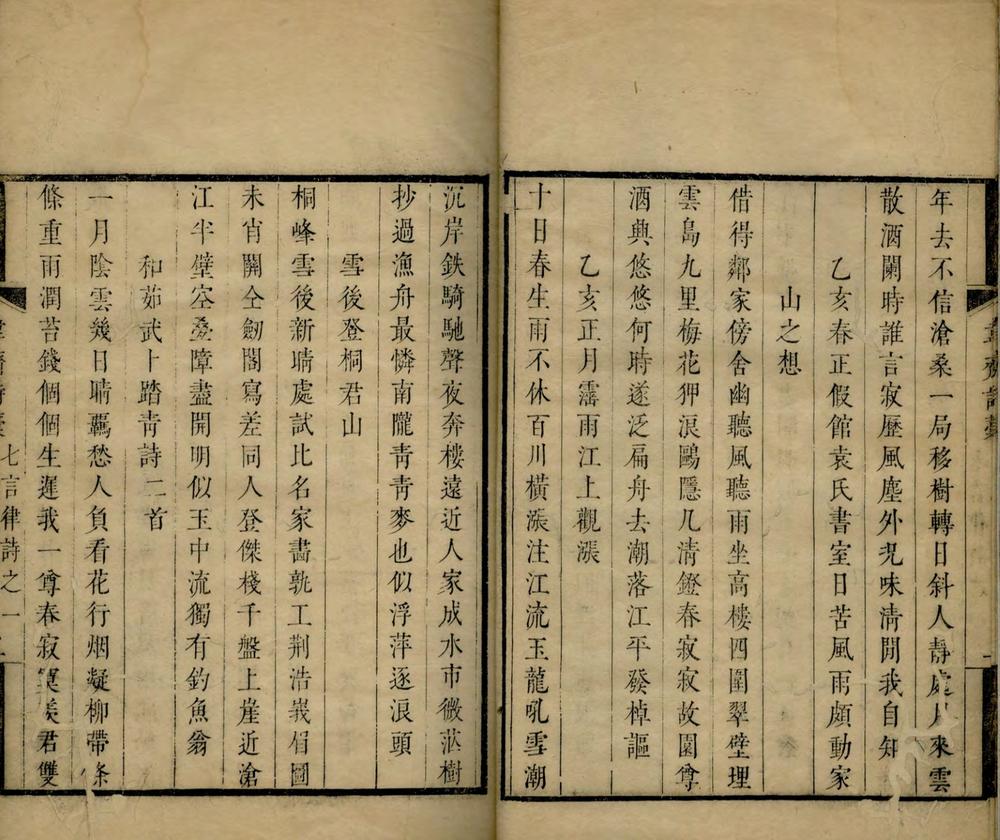 年去不信滄桑一局移樹轉日斜人靜處月來雲
散酒闌時誰言寂歷風塵外況味淸閒我自知
乙亥春正假館袁氏書室日苦風雨頗動家
山之想
借得鄰家傍舍幽聽風聽雨坐高樓四圍翠壁埋
雲島九里梅花狎浪鷗隱几淸鐙春寂寂故園尊
酒興悠悠何時遂泛扁舟去潮落江平發棹謳
乙亥正月霪雨江上觀漲
十日春生雨不休百川橫漲注江流玉龍吼雪潮
沉岸鉄騎馳聲夜奔樓遠近人家成水市微茫樹
抄過漁舟最憐南隴靑靑麥也似浮萍逐浪頭
雪後登桐君山
桐峰雪後新晴處試比名家畵孰工荆浩峩眉圖
未肖關仝劒閣寫差同人登傑棧千盤上崖近滄
江半壁空疊障盡開明似玉中流獨有釣魚翁
和茹武卜踏靑詩二首
一月陰雲幾日晴羈愁人負看花行烟凝柳帶條
條重雨潤苔錢個個生遲我一尊春寂寞羨君雙
七言律詩之一